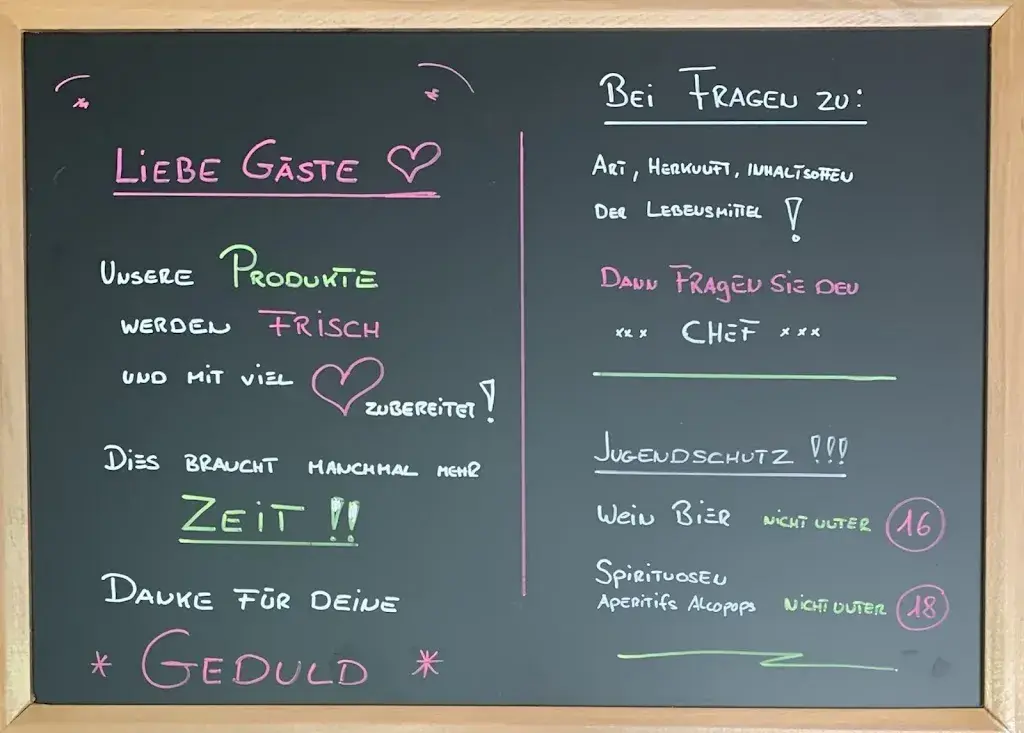 LIEBE GÄSTE
UNSERE PRODUKTE
WERDEN FRISCH
UND MIT VIEL
ZUBEREITET!
DIES BRAUCHT MANCHMAL MEHR
ZEIT !!
DANKE FÜR DEINE
* GEDULD *
BEI FRAGEN ZU:
ART, HERKUNFT, INHALTSOFFEN
DER LEBENSMITTEL !
DANN FRAGEN SIE DEN
xxx CHEF xxx
JUGENDSCHUTZ !!!
WEIN BIER NICHT UNTER 16
SPIRITUOSEN
APERITIFS ALCOPOPS NICHT UNTER 18